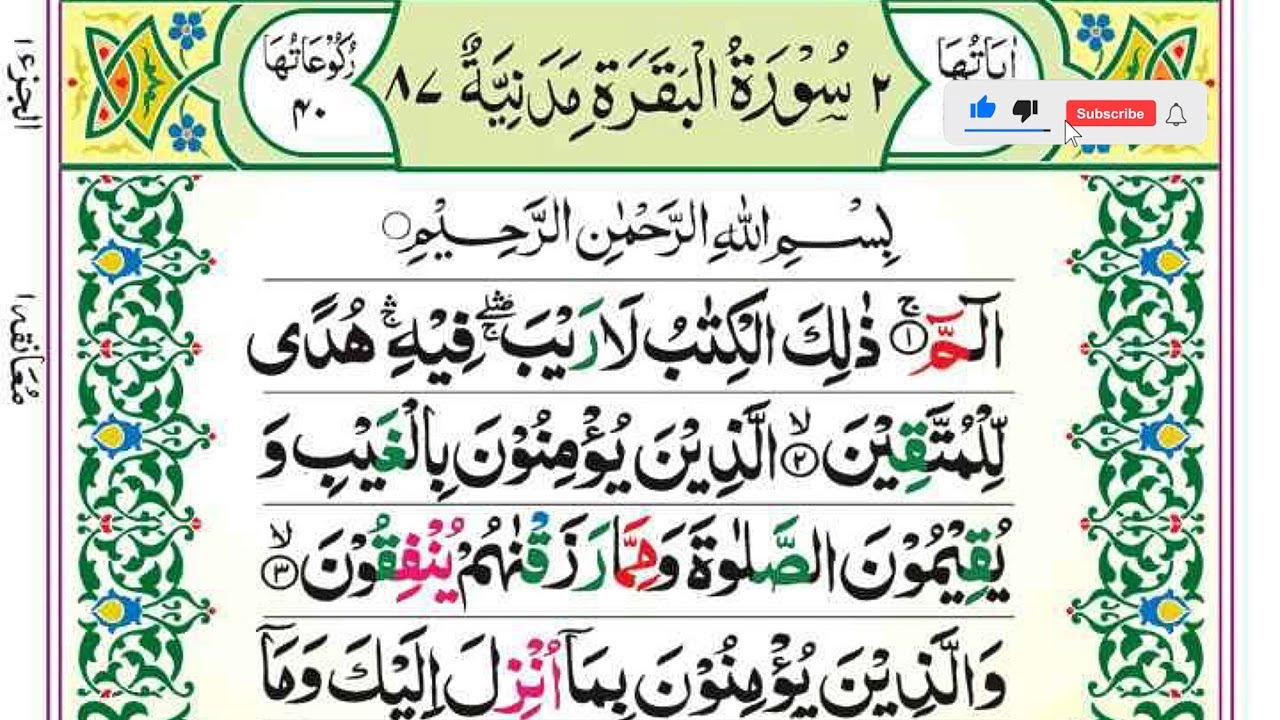 اٰيَاتُهَا
٢ سُوْرَةُ الْبَقَرَةِ مَدَنِيَّةٌ ٨٧
رُكُوْعَاتُهَا
٤٠
Subscribe
الجزء ١
بِسْمِ اللّٰهِ الرَّحْمٰنِ الرَّحِيْمِ
الٓمّٓ ۚ ﴿١﴾ ذٰلِكَ الْكِتٰبُ لَا رَيْبَ ۛۖۚ فِيْهِ ۛۚ هُدًى
مُعَانقہ ١
لِّلْمُتَّقِيْنَ ۙ ﴿٢﴾ الَّذِيْنَ يُؤْمِنُوْنَ بِالْغَيْبِ وَ
يُقِيْمُوْنَ الصَّلٰوةَ وَمِمَّا رَزَقْنٰهُمْ يُنْفِقُوْنَ ۙ ﴿٣﴾
وَالَّذِيْنَ يُؤْمِنُوْنَ بِمَآ اُنْزِلَ اِلَيْكَ وَمَآ